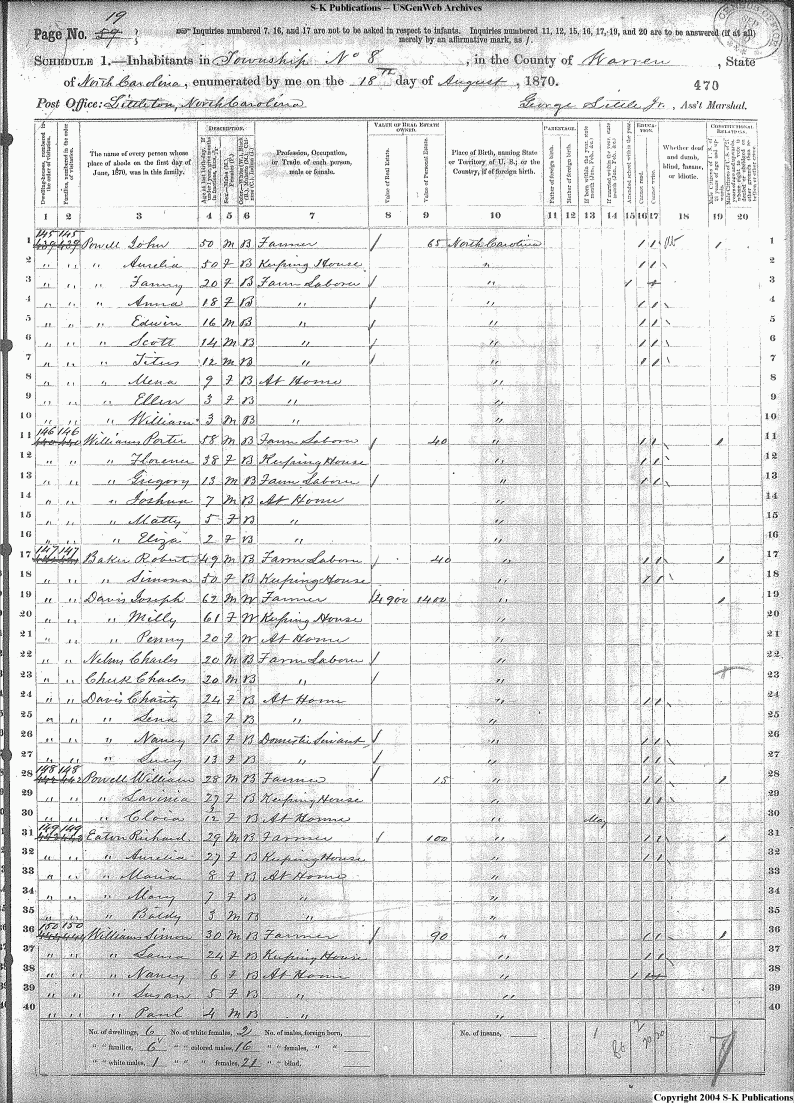 S-K Publications -- USGenWeb Archives
19
Page No. 59 Inquiries numbered 7, 16, and 17 are not to be asked in respect to infants. Inquiries numbered 11, 12, 15, 16, 17, 19, and 20 are to be answered (if at all)
merely by an affirmative mark, as /.
Schedule 1.—Inhabitants in Township No 8, in the County of Warren, State
of North Carolina, enumerated by me on the 18th day of August, 1870. 470
Post Office: Littleton, North Carolina George Little Jr., Ass't Marshal.
Dwelling-houses, numbered in the order of visitation.
Families, numbered in the order of visitation.
The name of every person whose place of abode on the first day of June, 1870, was in this family.
Description.
Profession, Occupation, or Trade of each person, male or female.
Value of Real Estate owned.
Value of Real Estate.
Value of Personal Estate.
Place of Birth, naming State or Territory of U. S.; or the Country, if of foreign birth.
Parentage.
Father of foreign birth.
Mother of foreign birth.
If born within the year, state month (Jan., Feb., &c.)
If married within the year, state month (Jan., Feb., &c.)
Education.
Attended school within the year.
Cannot read.
Cannot write.
Whether deaf and dumb, blind, insane, or idiotic.
Constitutional Relations.
1 2 3 4 5 6 7 8 9 10 11 12 13 14 15 16 17 18 19 20
1 145 145 Powell John 50 M B Farmer / 65 North Carolina / / / 1
2 " " " Aurelia 50 F B Keeping House " / / 2
3 " " " Fanny 20 F B Farm Laborer / " / / 3
4 " " " Anna 18 F B " / " / / 4
5 " " " Edwin 16 M B " / " / / 5
6 " " " Scott 14 M B " / " / / 6
7 " " " Titus 12 M B " / " / / 7
8 " " " Mena 9 F B At Home " 8
9 " " " Ellin 3 F B " " 9
10 " " " William 3 M B " " 10
11 146 146 Williams Porter 58 M B Farm Laborer / 40 " / / / 11
12 " " " Florence 38 F B Keeping House " / / 12
13 " " " Gregory 13 M B Farm Laborer / " / / 13
14 " " " Joshua 7 M B At Home " 14
15 " " " Matty 5 F B " " 15
16 " " " Eliza 2 F B " " 16
17 147 147 Baker Robert 49 M B Farm Laborer / 40 " / / / 17
18 " " " Simona 50 F B Keeping House " / / 18
19 " " Davis Joseph 62 M W Farmer 4900 1400 " / 19
20 " " " Milly 61 F W Keeping House " 20
21 " " " Penny 20 F W At Home " 21
22 " " Nelms Charles 20 M B Farm Laborer / " 22
23 " " Cheek Charles 20 M B " / " 23
24 " " Davis Charity 24 F B At Home " / / 24
25 " " " Lena 2 F B " " 25
26 " " " Nancy 16 F B Domestic Servant / " / / 26
27 " " " Lucy 13 F B " / " / / 27
28 148 148 Powell William 28 M B Farmer / 15 " / / / 28
29 " " " Lavinia 27 F B Keeping House " / / 29
30 " " " Clora 3/12 F B At Home " May 30
31 149 149 Eaton Richard 29 M B Farmer / 100 " / / / 31
32 " " " Aurelia 27 F B Keeping House " / / 32
33 " " " Maria 8 F B At Home " 33
34 " " " Mary 7 F B " " 34
35 " " " Baldy 3 M B " " 35
36 150 150 Williams Simon 30 M B Farmer / 90 " / / / 36
37 " " " Laura 24 F B Keeping House " / / 37
38 " " " Nancy 6 F B At Home " / / / 38
39 " " " Susan 5 F B " " 39
40 " " " Paul 4 M B " " 40
No. of dwellings, 6 No. of white females, 2 No. of males, foreign born, No. of insane,
" " families, 6 " " colored males, 16 " " females, " "
" " white males, 1 " " females, 21 " " blind,
Copyright 2004 S-K Publications